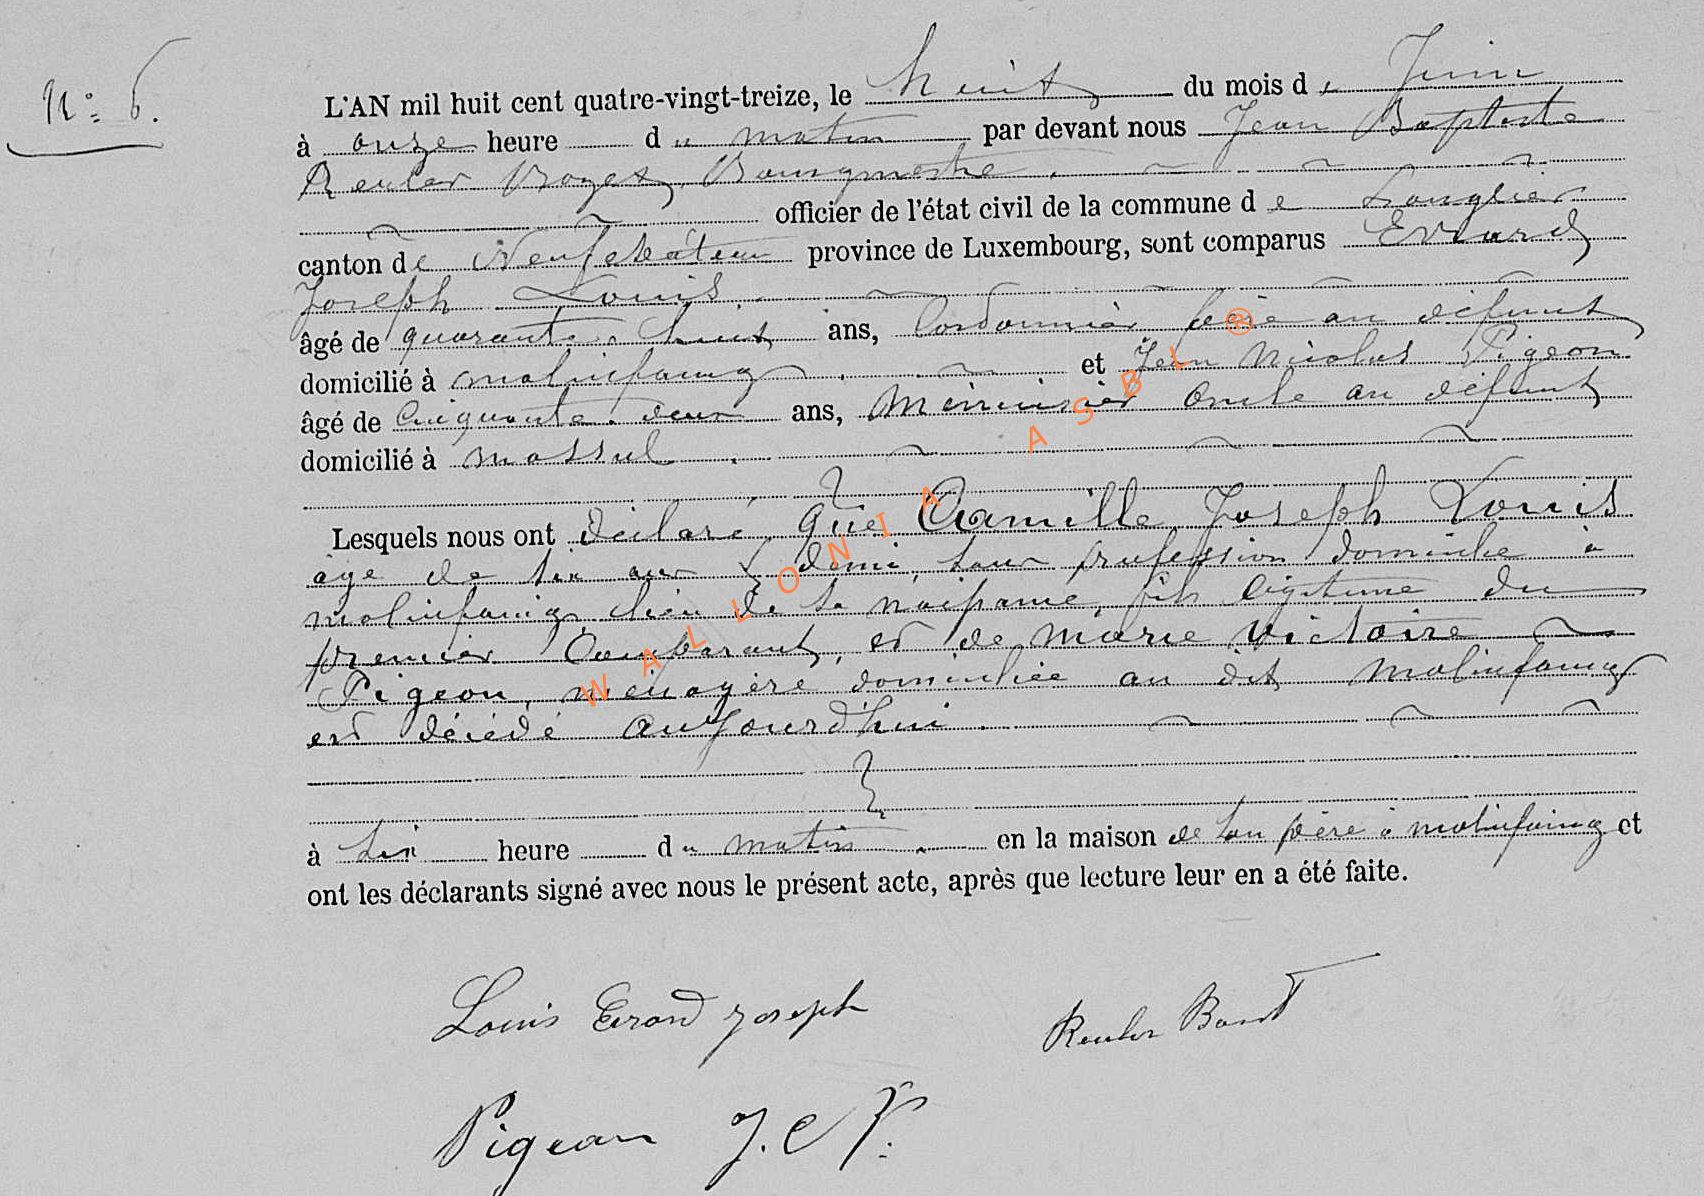 N° 6.
L'AN mil huit cent quatre-vingt-treize, le huit du mois de Juin
à onze heure du matin par devant nous Jean Baptiste
Reuler Bourgmestre.
officier de l'état civil de la commune de Longlier
canton de Neufchâteau province de Luxembourg, sont comparus Evrard
Joseph Louis,
âgé de quarante huit ans, Cordonnier père au défunt
domicilié à molinfaing. et Jean Nicolas Pigeon
âgé de cinquante deux ans, Menuisier oncle au défunt
domicilié à massul.
Lesquels nous ont déclaré que Camille Joseph Louis
âgé de six ans & demi, sans profession domicilié à
molinfaing lieu de sa naissance, fils légitime du
premier Comparant, et de Marie Victoire
Pigeon, ménagère domiciliée au dit Molinfaing
est décédé aujourd'hui.
à six heure du matin. en la maison de son père à molinfaing et
ont les déclarants signé avec nous le présent acte, après que lecture leur en a été faite.
Louis Evrard Joseph
Reuler Bart
Pigeon J.
WALLONIA ASBL ®